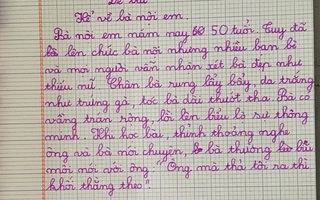 Đề bài
Kể về bà nội em.
Bà nội em năm nay 50 tuổi. Tuy đã
là lên chức bà nội nhưng nhiều bạn bè
và mọi người vẫn nhận xét bà đẹp như
thiếu nữ. Chân bà rung lẩy bẩy, da trắng
như trứng gà, tóc bà dài thướt tha. Bà có
vầng trán rộng, lồi lên biểu lộ sự thông
minh. Khi học bài, thỉnh thoảng nghe
ông và bà nói chuyện, bà thường
mới nói với ông: "Ông mà thả tôi ra thì
khối thằng theo".